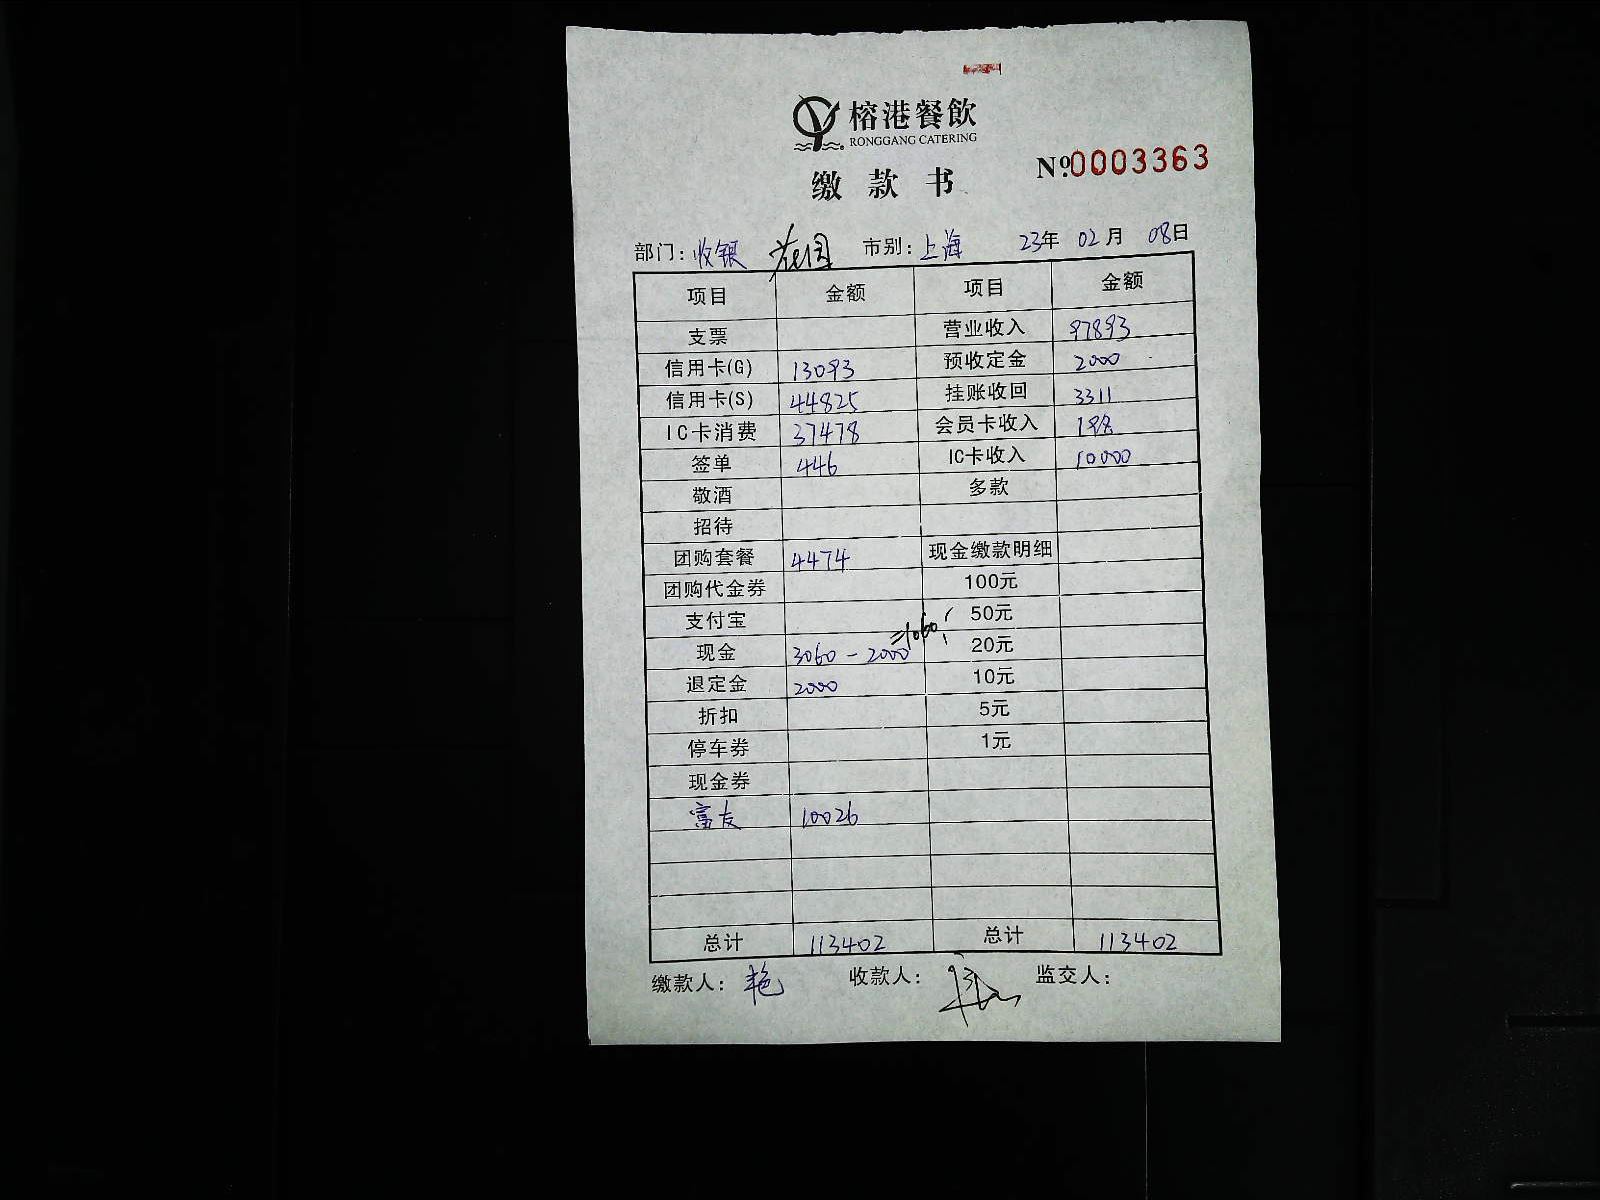 榕港餐飲
RONGGANG CATERING
缴款书 Nº:0003363
部门: 收银 花园 市别: 上海 23年 02月 08日
项目 金额 项目 金额
支票 营业收入 97893
信用卡(G) 13093 预收定金 2000
信用卡(S) 44825 挂账收回 3311
IC卡消费 37478 会员卡收入 198
签单 446 IC卡收入 10000
敬酒 多款
招待
团购套餐 4474 现金缴款明细
团购代金券 100元
支付宝 50元
现金 3060-2000=1060 20元
退定金 2000 10元
折扣 5元
停车券 1元
现金券
富友 10026
总计 113402 总计 113402
缴款人: 艳 收款人: 监交人: